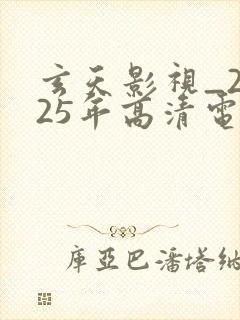 玄天影視_2
25年高清電
庫亞巴潘塔納